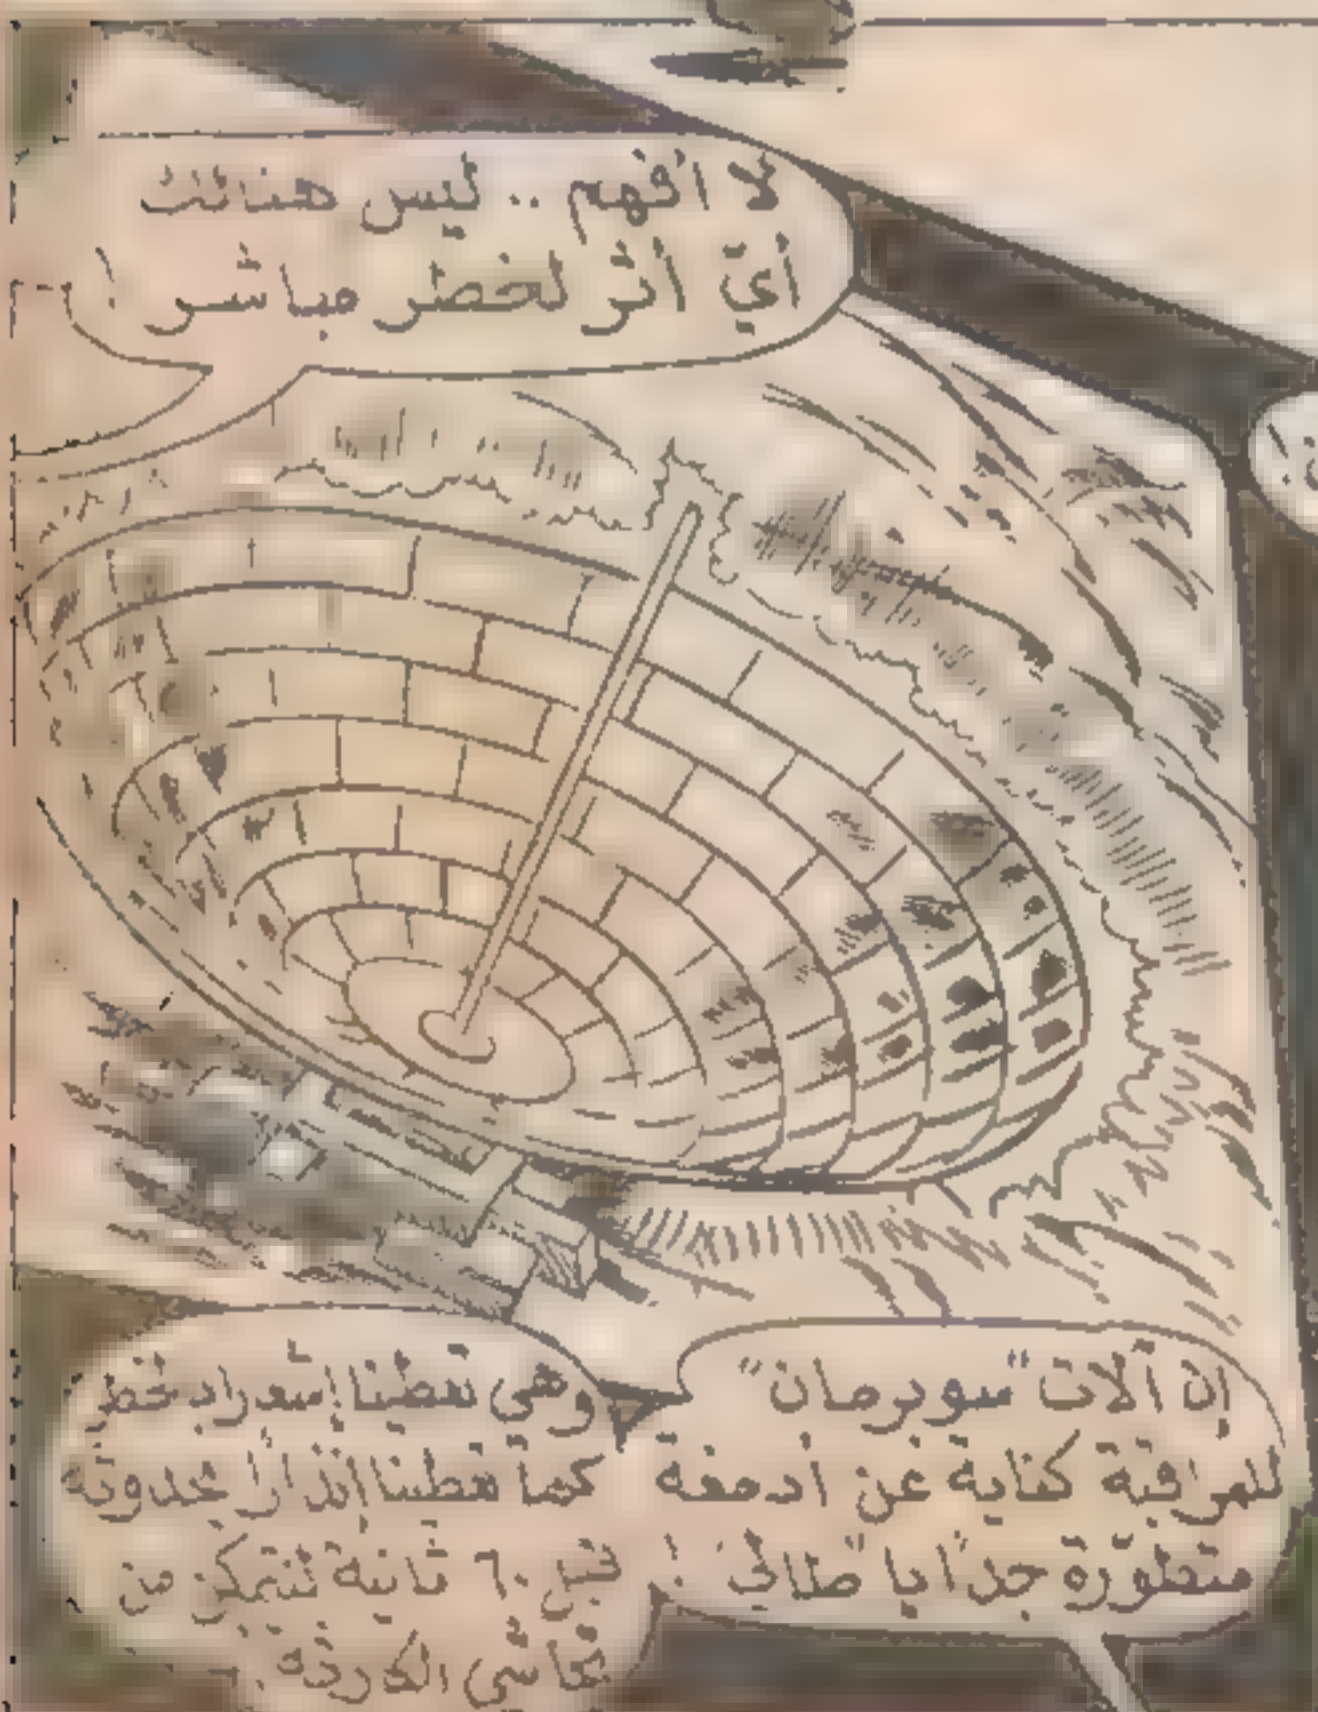 لا أفهم .. ليس هنالك
أيّ أثر لخطر مباشر !
إن آلات "سوبرمان"
للمراقبة كناية عن أدمغة
متطوّرة جدًا يا "طالي" !
وهي تعطينا إستدراك خطر
كما تعطينا إنذارًا بحدوثه
قبل ٦٠ ثانية لنتمكن من
تحاشي الكارثة .